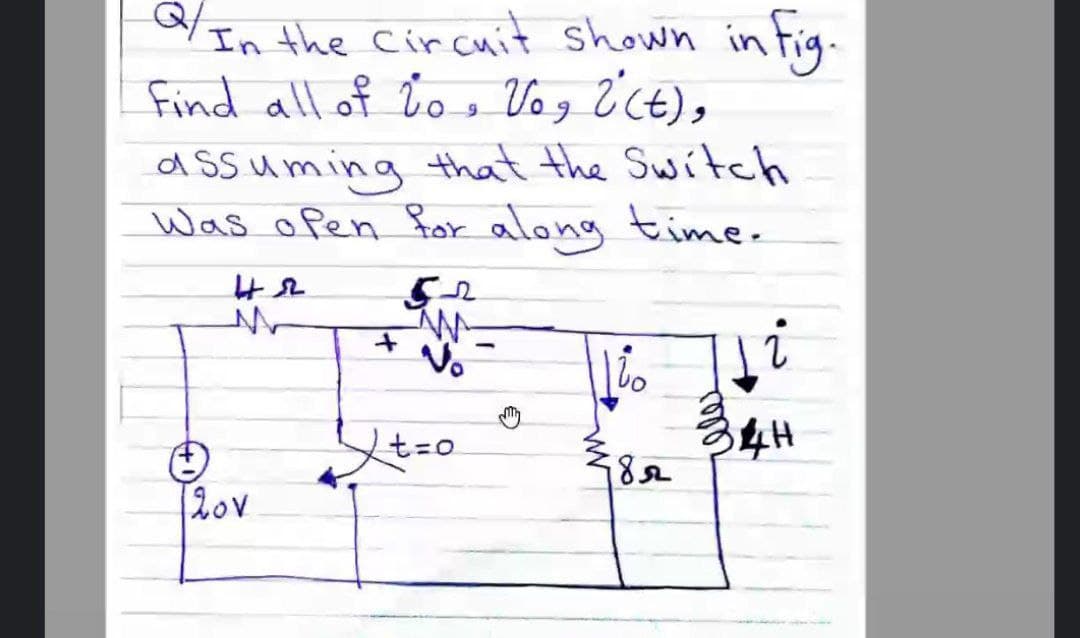 Q/ In the circuit shown in Fig.
Find all of io, Vo, i(t),
assuming that the switch
was open for along time.
4Ω 5Ω
+ Vo -
io
i
t=0
4H
8Ω
+
-
20V